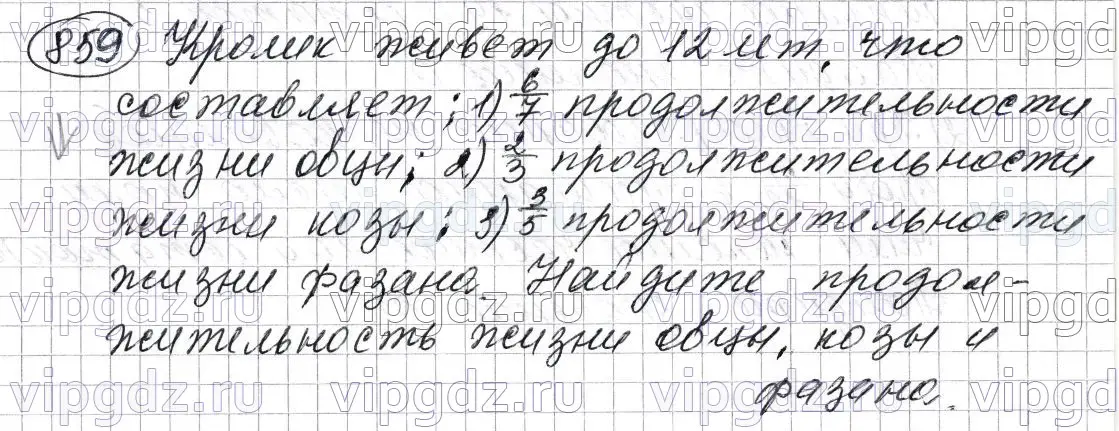 859 Кролик живет до 12 лет, что
составляет: 1) 6/7 продолжительности
жизни овцы; 2) 2/3 продолжительности
жизни козы; 3) 3/5 продолжительности
жизни фазана. Найдите продол-
жительность жизни овцы, козы и
фазана.